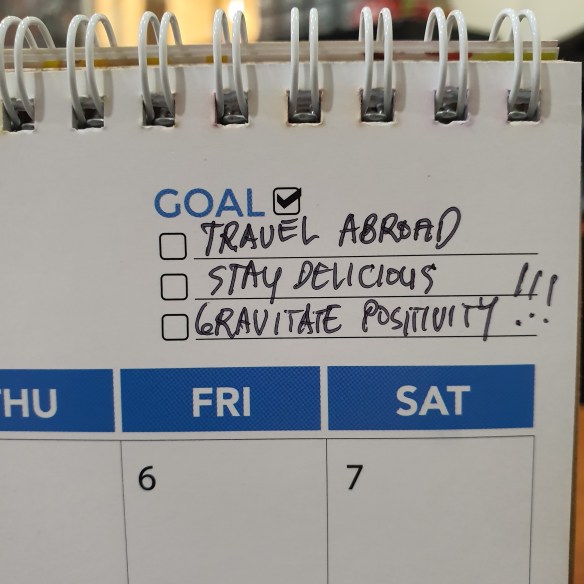 GOAL
TRAVEL ABROAD
STAY DELICIOUS
GRAVITATE POSITIVITY !!!
THU FRI SAT
6 7